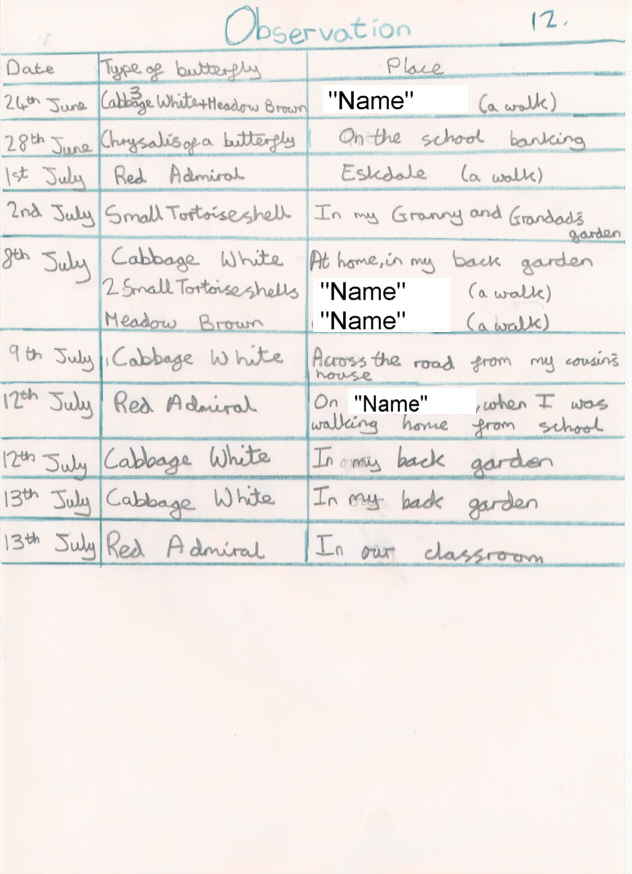 Observation 12.
Date Type of butterfly Place
24th June Cabbage 3 White + Meadow Brown "Name" (a walk)
28th June Chrysalis of a butterfly On the school banking
1st July Red Admiral Eskdale (a walk)
2nd July Small Tortoiseshell In my Granny and Grandad's
garden
8th July Cabbage White At home, in my back garden
2 Small Tortoiseshells "Name" (a walk)
Meadow Brown "Name" (a walk)
9th July 1 Cabbage White Across the road from my cousin's
house
12th July Red Admiral On "Name" , when I was
walking home from school
12th July Cabbage White In my back garden
13th July Cabbage White In my back garden
13th July Red Admiral In our classroom